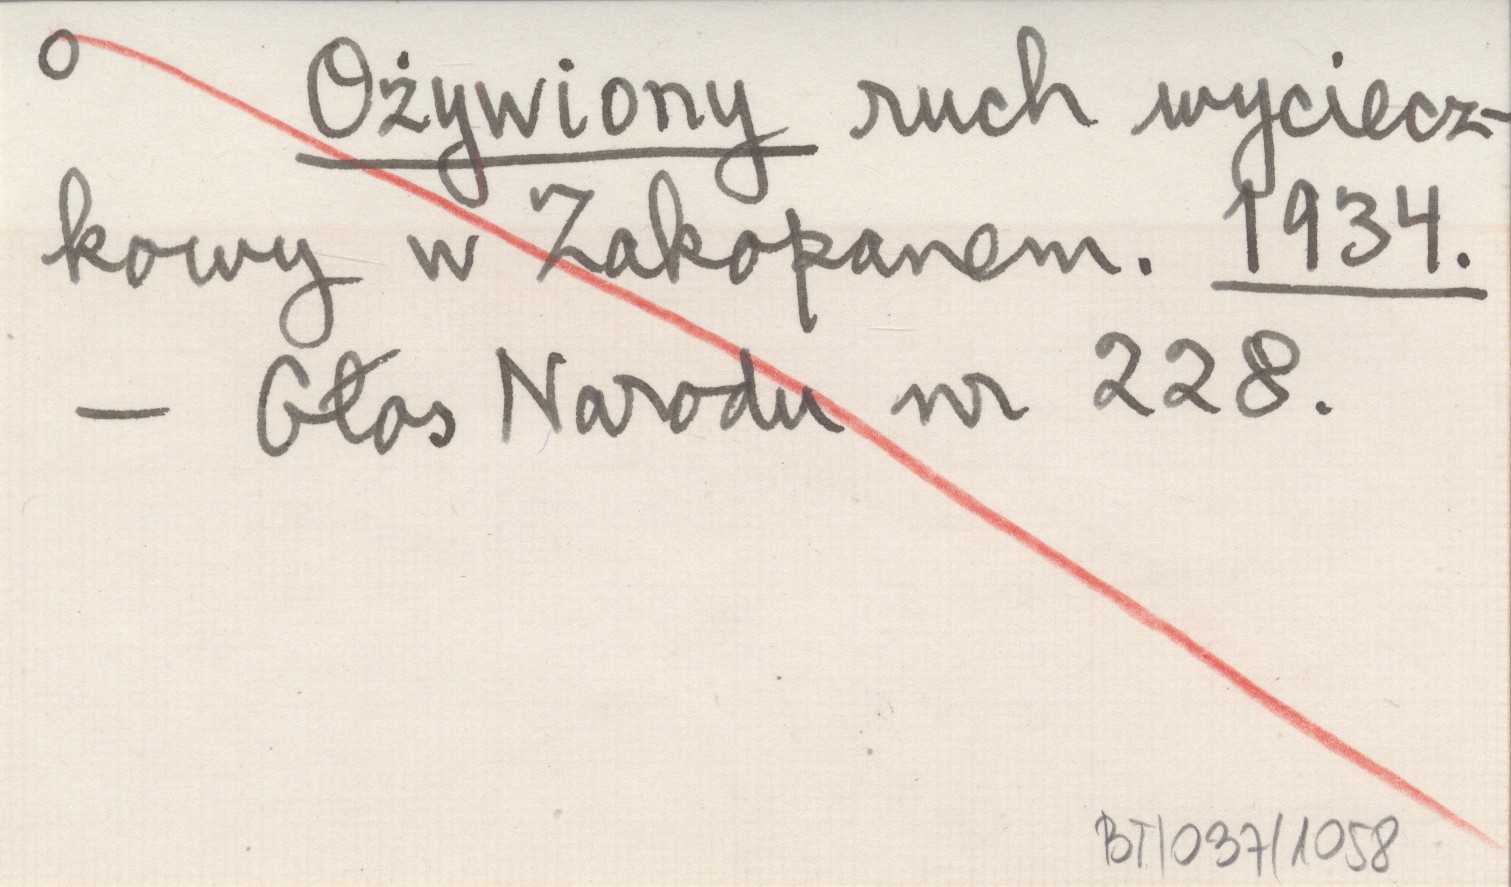 O Ożywiony ruch wyciecz-
kowy w Zakopanem. 1934.
— Głos Narodu nr 228.
BT/037/1058